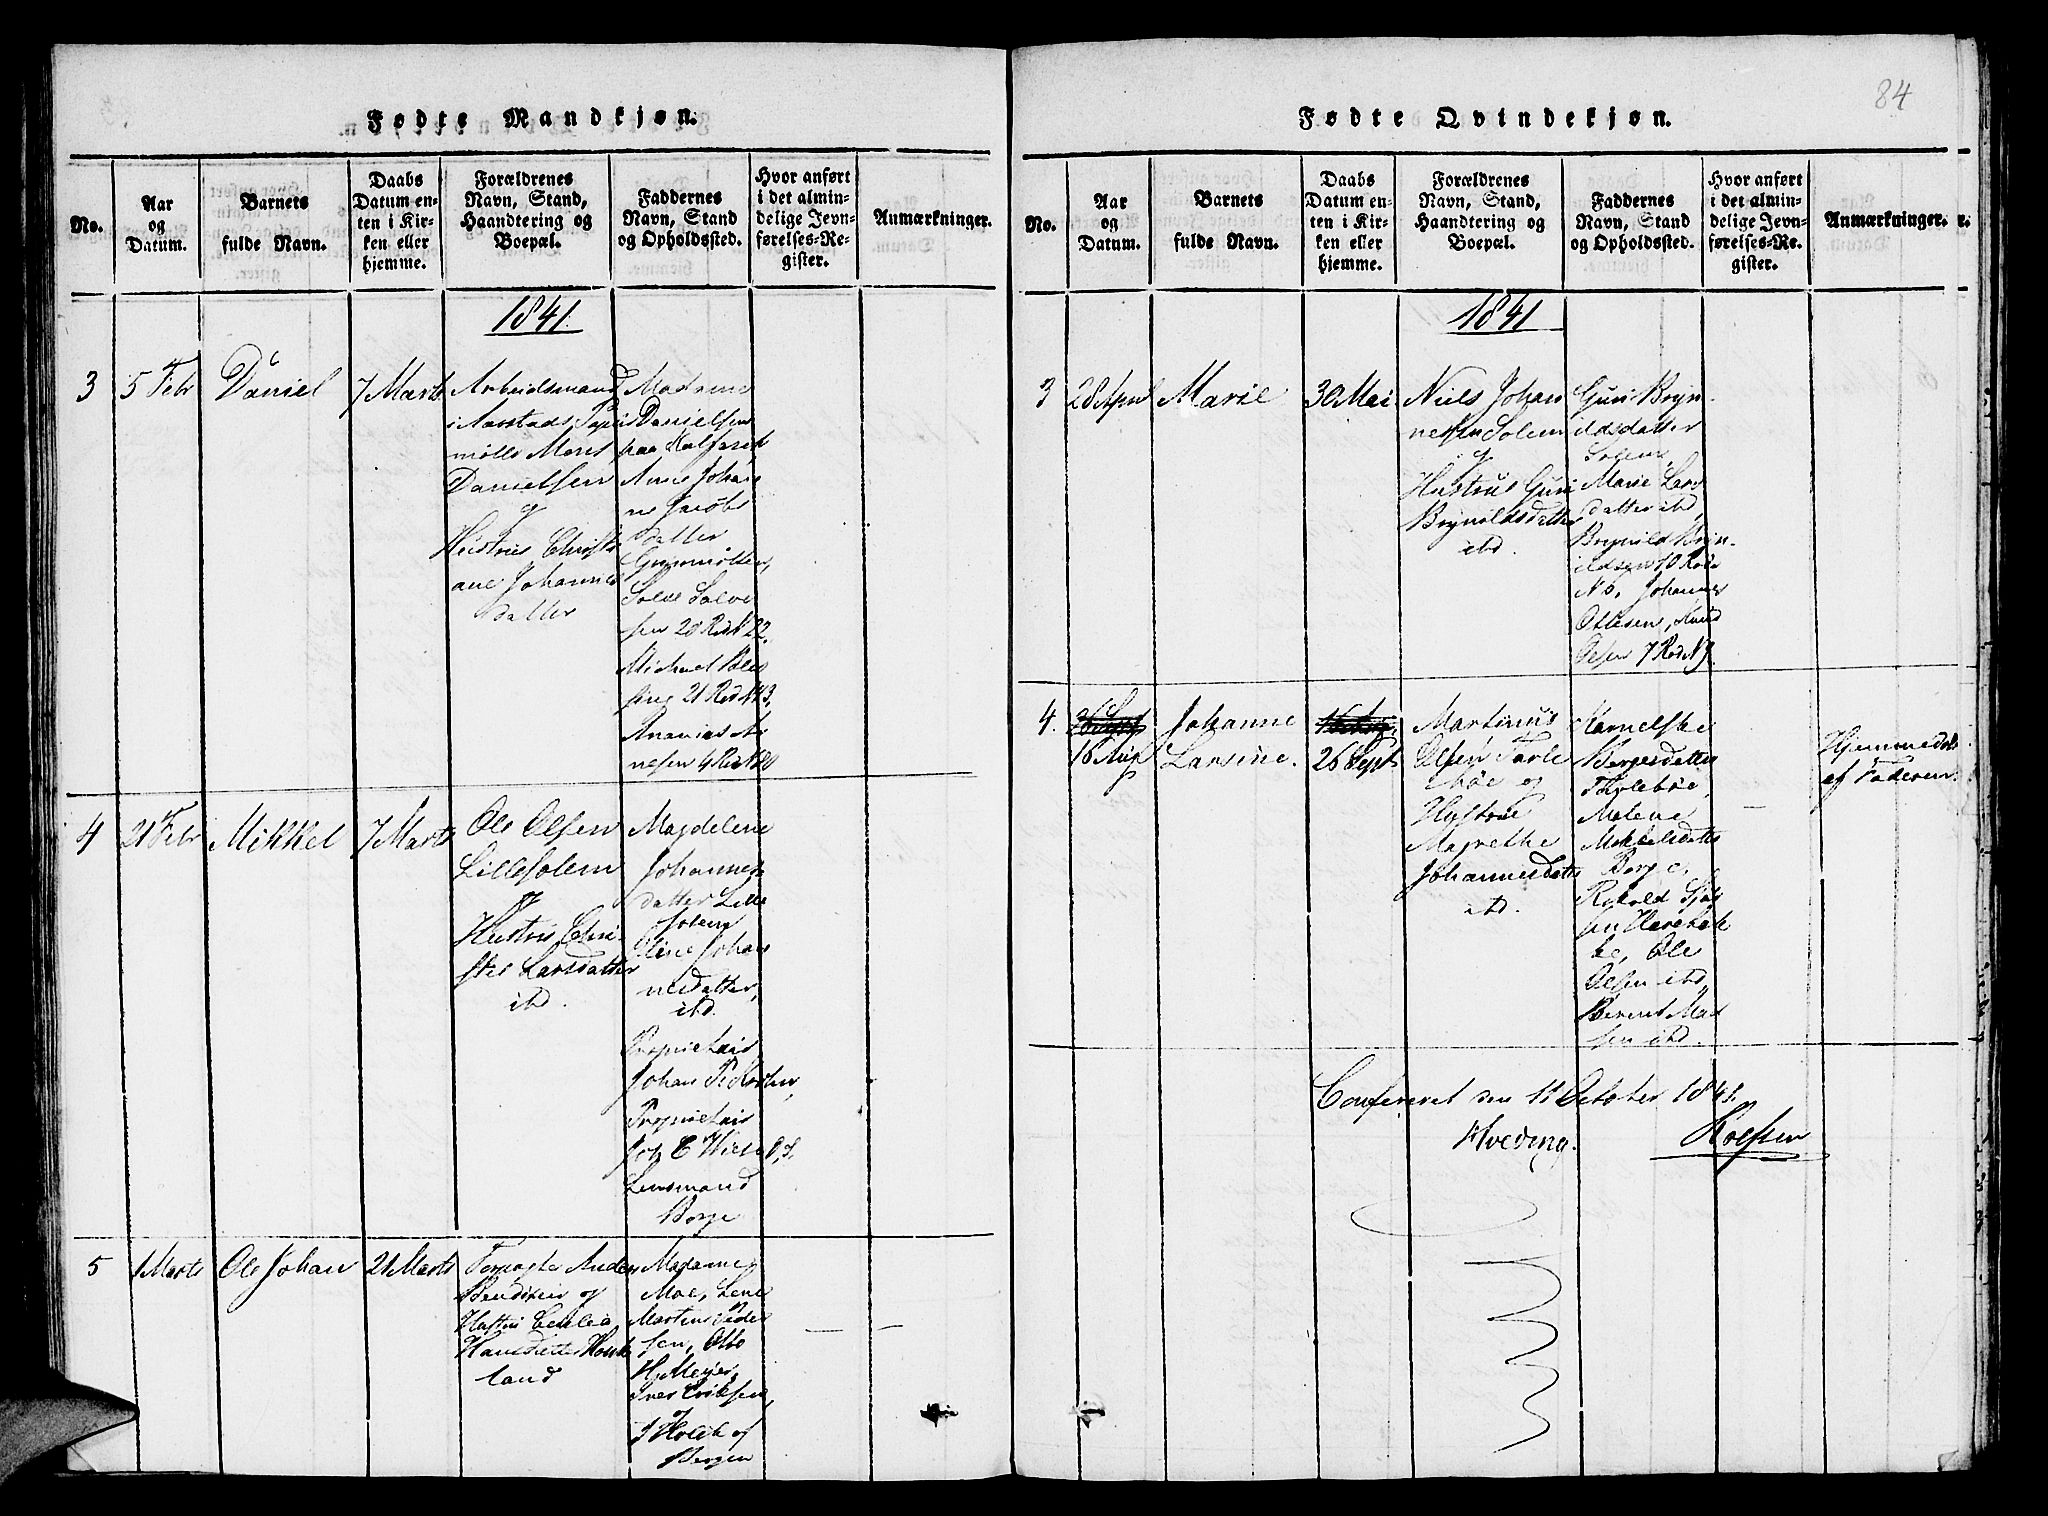 84
Fødte Mandkjøn.
No.
Aar
og
Datum.
Barnets
fulde Navn.
Daabs
Datum en-
ten i Kir-
ken eller
hjemme.
Forældrenes
Navn, Stand,
Haandtering og
Boepæl.
Faddernes
Navn, Stand
og Opholdssted.
Hvor anført
i det almin-
delige Jevn-
førelses-Re-
gister.
Anmærkninger.
1841.
3
5 Febr
Daniel
7 Marts
Arbeidsmand
i Aarstads Papir
mølle
Danielsen
og
Hustrue Christi
ane Johannes
datter
Madame
Danielsen
paa Kalfaret,
Anne Johan
ne Jacobs
datter
Solve Solve
sen 20 Rode N 22.
Michael Bles
sing 21 Rode N 43,
Ananias Ar
nesen 4 Rode N 20
4
21 Febr
Mikkel
7 Marts
Ole Olsen
Lillesolem
og
Hustrue Chri-
sti Larsdatter
ibd.
Magdelene
Johannes
datter Lille
solem
Oline Johan
nesdatter,
ibd.
Proprietair
Johan
Proprietair
Joh C
Lensmand
Borge
5
1 Marts
Ole Johan
21 Marts
Forpagter Anders
Bendixen og
Hustru Cecilia
Hansdatter Houk
land
Madame
Moe, Lene
Martine Peder
sen, Otto
H. Meyer,
Iver Eriksen,
J Holck af
Bergen
Fødte Qvindekjøn.
No.
Aar
og
Datum.
Barnets
fulde Navn.
Daabs
Datum en-
ten i Kir-
ken eller
hjemme.
Forældrenes
Navn, Stand,
Haandtering og
Boepæl.
Faddernes
Navn, Stand
og Opholdssted.
Hvor anført
i det almin-
delige Jevn-
førelses-Re-
gister.
Anmærkninger.
1841
3
28 April
Marie
30 Mai
Niels Johan
nessen Solem
og
Hustrue Guri
Brynildsdatter
ibd.
Guri Bryn-
ildsdatter
Solem,
Marie Lars
datter ibd,
Brynild Bryn-
ildsen 10 Rode
N 6, Johannes
Ottesen, Knud
Olsen 7 Rode N 9.
4.
16 Aug
Johanne
Larsine.
26 Sept
Martinus
Olsen Tarle
bøe og
Hustrue
Magrethe
Johannesdatter
ibd.
Karnelske
Børgesdatter
Tharlebøe,
Malene
Mikkelsdatter
Borge,
sen Harebak
ke, Ole
Olsen ibd,
Berent Mad
sen ibd.
Hjemmedøbt
af Faderen
Confereret den 11 October 1841.
Hveding.